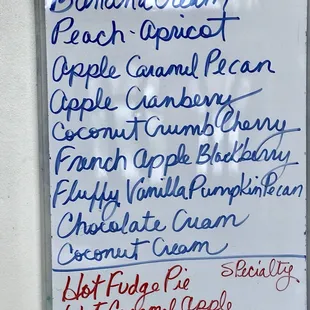 Banana Cream
Peach-Apricot
Apple Caramel Pecan
Apple Cranberry
Coconut Crumb Cherry
French Apple Blackberry
Fluffy Vanilla Pumpkin Pecan
Chocolate Cream
Coconut Cream
Specialty
Hot Fudge Pie
Hot Caramel Apple